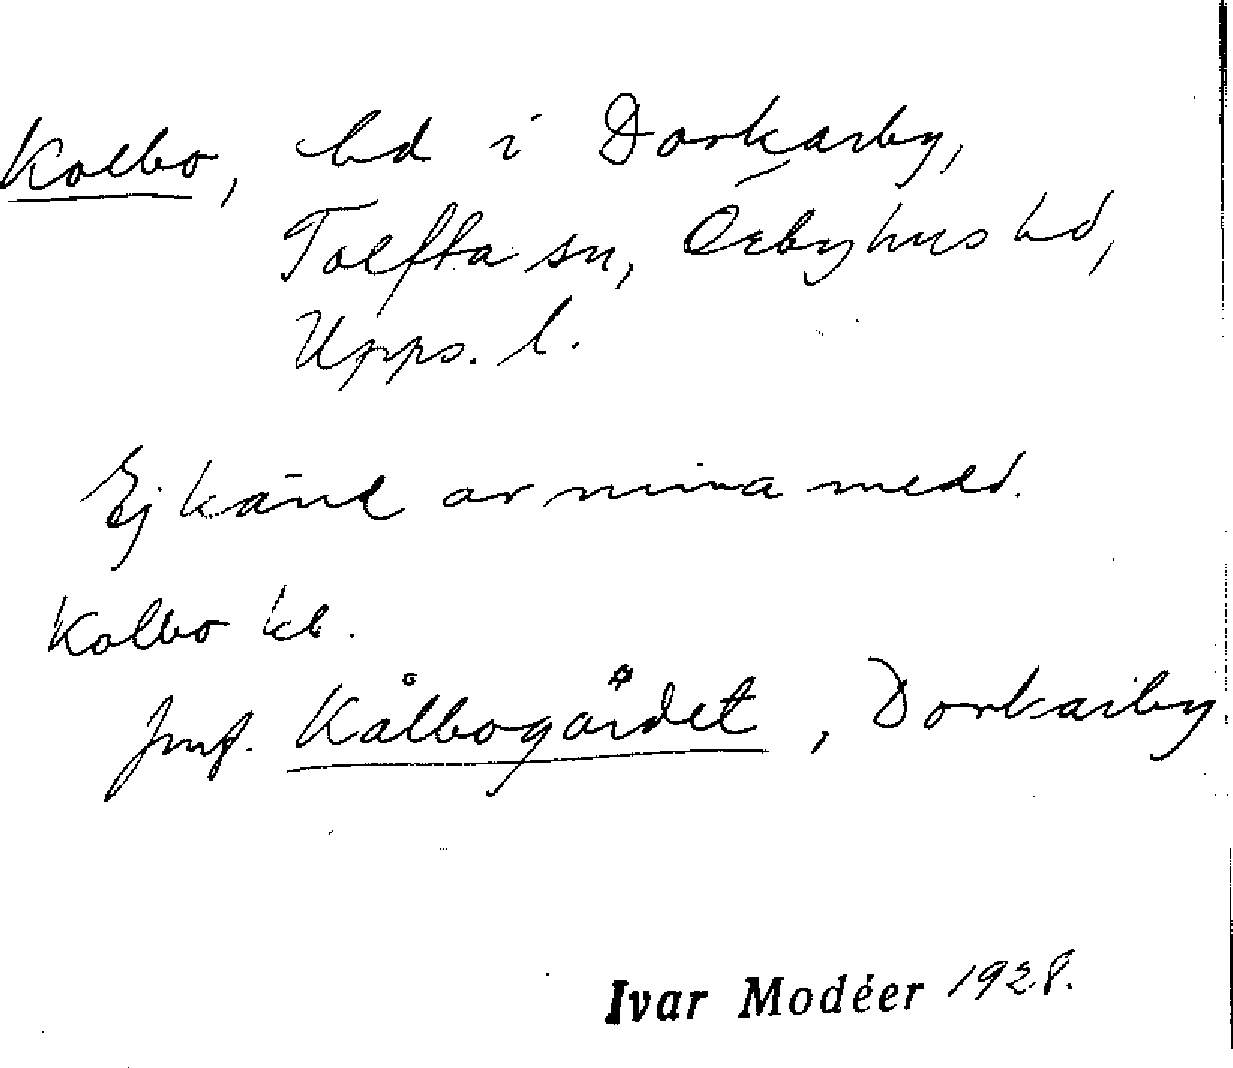 Kolbo, bd i Dorkarby,
Tolfta sn, Örbyhus hd,
Upps. l.
Ej känd av mina medd.
Kolbo kb.
Jmf. Kålbogärdet, Dorkarby.
Ivar Modéer 1928.